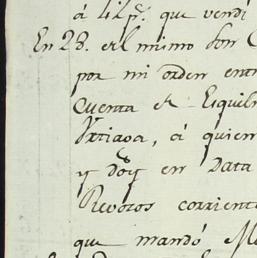 á 4 1/2 ps. que vendí
En 28. del mismo Don
por mi orden entr
cuenta de Esquil
Urtiaga, á quien
y doy en Data
Revozos corriente
que mandó M